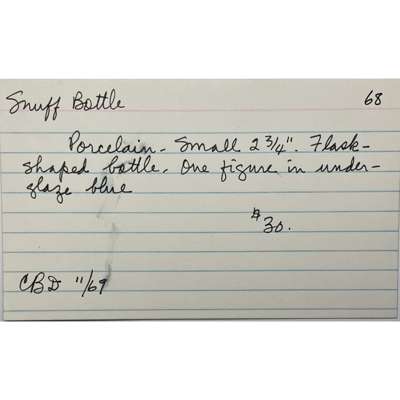 Snuff Bottle 68
Porcelain - Small 2 3/4". Flask-
shaped bottle. One figure in under-
glaze blue
$30.
CBD 11/69